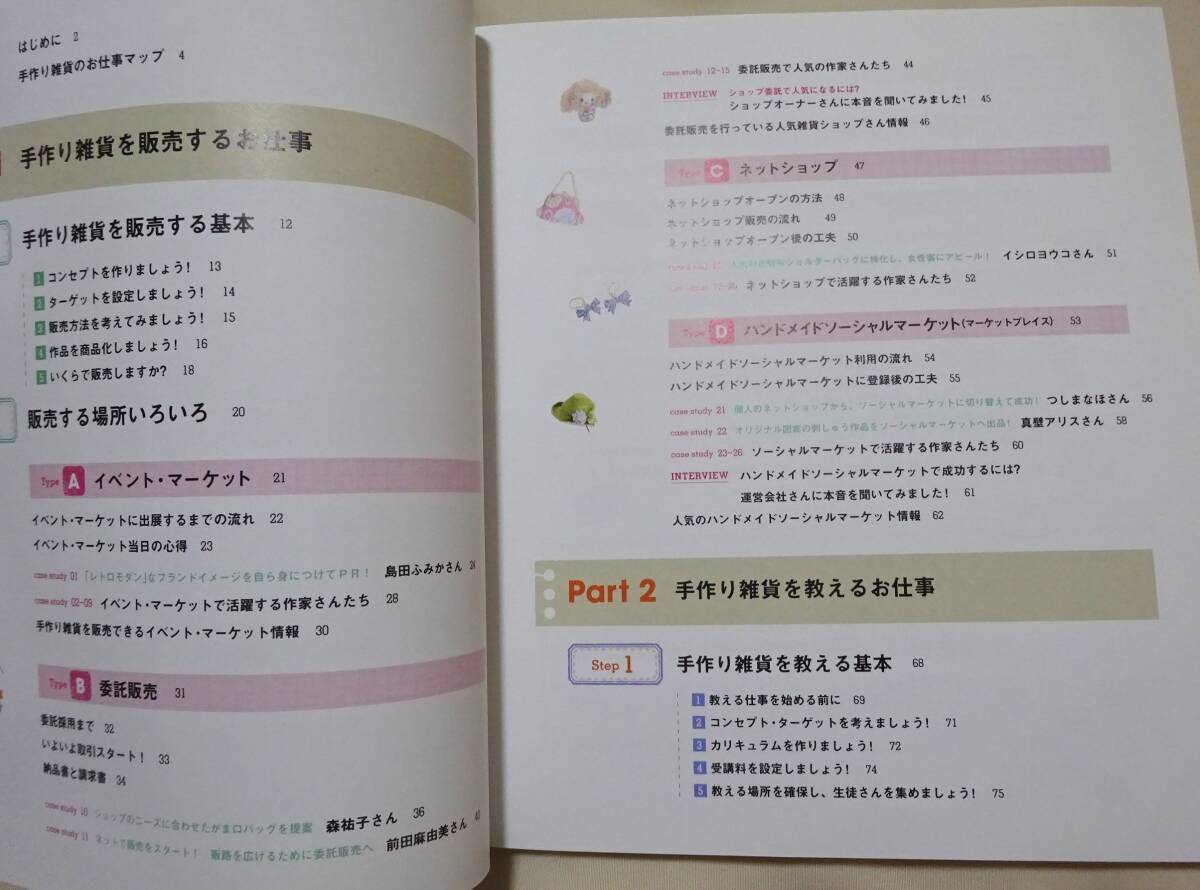 はじめに 2
手作り雑貨のお仕事マップ 4
手作り雑貨を販売するお仕事
手作り雑貨を販売する基本 12
1 コンセプトを作りましょう! 13
2 ターゲットを設定しましょう! 14
3 販売方法を考えてみましょう! 15
4 作品を商品化しましょう! 16
5 いくらで販売しますか? 18
販売する場所いろいろ 20
Type A イベント・マーケット 21
イベント・マーケットに出展するまでの流れ 22
イベント・マーケット当日の心得 23
case study 01 「レトロモダン」なブランドイメージを自ら身につけてPR! 島田ふみかさん 24
case study 02-09 イベント・マーケットで活躍する作家さんたち 28
手作り雑貨を販売できるイベント・マーケット情報 30
Type B 委託販売 31
委託採用まで 32
いよいよ取引スタート! 33
納品書と請求書 34
case study 10 ショップのニーズに合わせたがま口バッグを提案 森祐子さん 36
case study 11 ネットで販売をスタート! 販路を広げるために委託販売へ 前田麻由美さん 40
case study 12-15 委託販売で人気の作家さんたち 44
INTERVIEW ショップ委託で人気になるには?
ショップオーナーさんに本音を聞いてみました! 45
委託販売を行っている人気雑貨ショップさん情報 46
Type C ネットショップ 47
ネットショップオープンの方法 48
ネットショップ販売の流れ 49
ネットショップオープン後の工夫 50
ショルダーバッグに特化し、女性客にアピール! イシロヨウコさん 51
ネットショップで活躍する作家さんたち 52
Type D ハンドメイドソーシャルマーケット(マーケットプレイス) 53
ハンドメイドソーシャルマーケット利用の流れ 54
ハンドメイドソーシャルマーケットに登録後の工夫 55
case study 21 個人のネットショップから、ソーシャルマーケットに切り替えて成功! つしまなほさん 56
case study 22 オリジナル図案の刺しゅう作品をソーシャルマーケットへ出品! 真壁アリスさん 58
case study 23-26 ソーシャルマーケットで活躍する作家さんたち 60
INTERVIEW ハンドメイドソーシャルマーケットで成功するには?
運営会社さんに本音を聞いてみました! 61
人気のハンドメイドソーシャルマーケット情報 62
Part 2 手作り雑貨を教えるお仕事
Step 1 手作り雑貨を教える基本 68
1 教える仕事を始める前に 69
2 コンセプト・ターゲットを考えましょう! 71
3 カリキュラムを作りましょう! 72
4 受講料を設定しましょう! 74
5 教える場所を確保し、生徒さんを集めましょう! 75